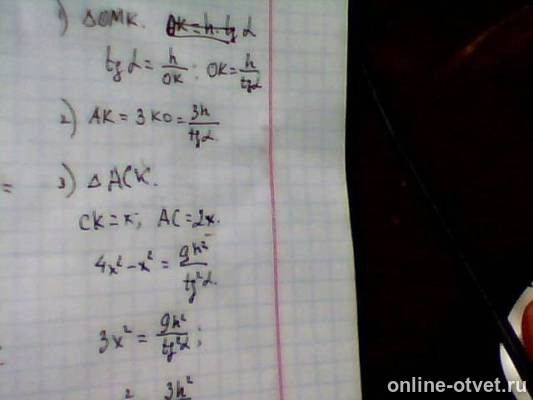 1) △OMK. OK = h · tg α
tg α = h/OK; OK = h/tgα
2) AK = 3KO = 3h/tgα
=
3) △ACK.
CK = x; AC = 2x.
4x² - x² = 9h²/tg²α.
3x² = 9h²/tg²α;
2 3h²
online-otvet.ru